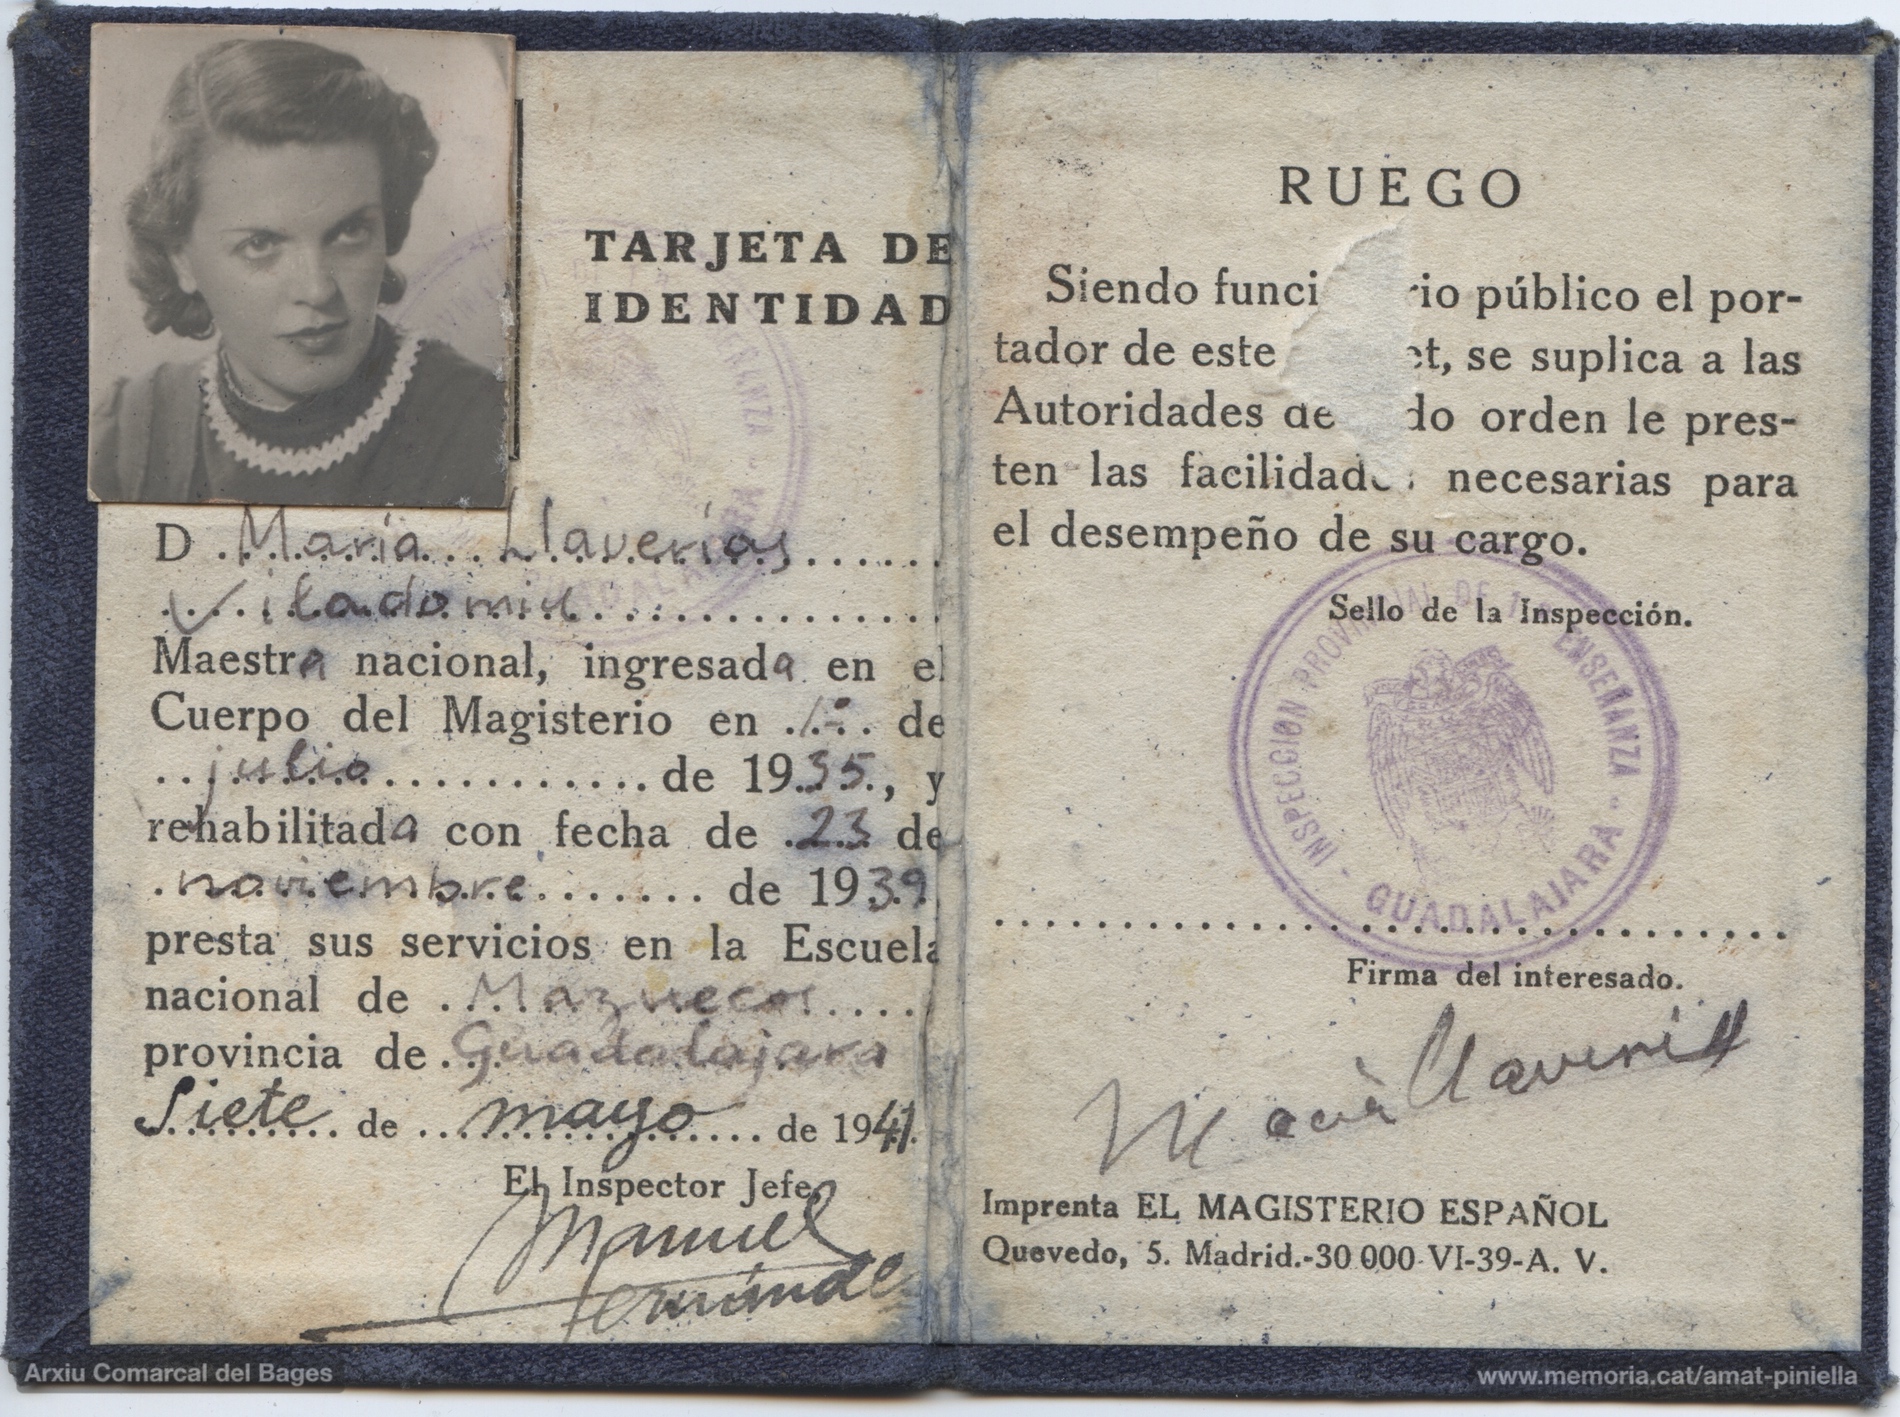 TARJETA DE
IDENTIDAD
D María Llaverías
Viladomiu
Maestra nacional, ingresada en el
Cuerpo del Magisterio en 1º de
julio de 1935, y
rehabilitada con fecha de 23 de
noviembre de 1939
presta sus servicios en la Escuela
nacional de Mazuecos
provincia de Guadalajara
Siete de mayo de 1941.
El Inspector Jefe,
Manuel
RUEGO
Siendo funci rio público el por-
tador de este et, se suplica a las
Autoridades de do orden le pres-
ten las facilidad necesarias para
el desempeño de su cargo.
Sello de la Inspección.
INSPECCION PROVINCIAL DE 1ª ENSEÑANZA - GUADALAJARA -
Firma del interesado.
María Llaverías
Imprenta EL MAGISTERIO ESPAÑOL
Quevedo, 5. Madrid.-30 000-VI-39-A. V.
Arxiu Comarcal del Bages
www.memoria.cat/amat-piniella